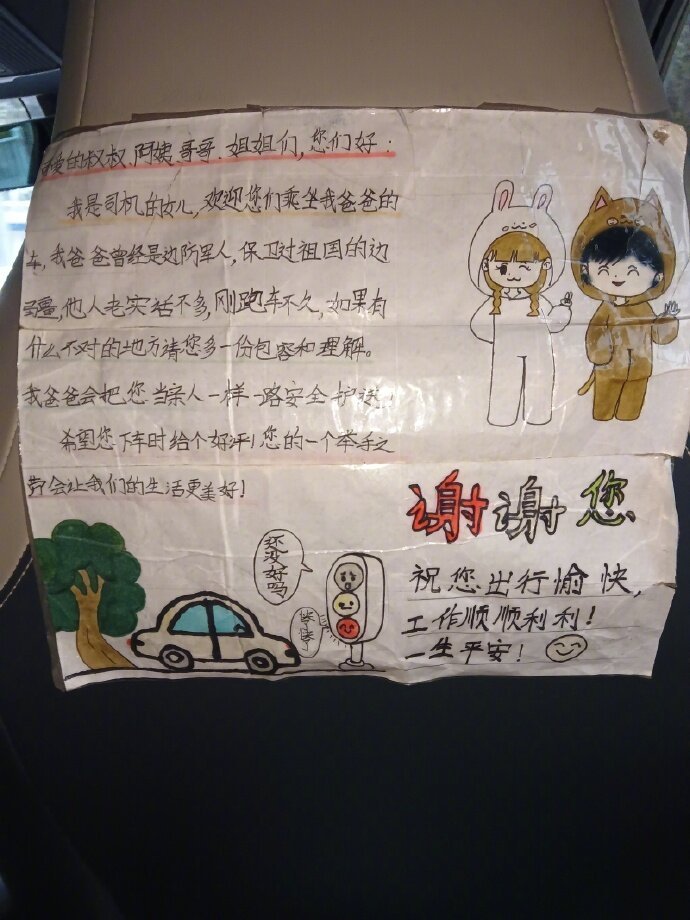 亲爱的叔叔、阿姨、哥哥、姐姐们,您们好:
我是司机的女儿,欢迎您们乘坐我爸爸的
车,我爸爸曾经是边防军人,保卫过祖国的边
疆,他人老实话不多,刚跑车不久,如果有
什么不对的地方请您多一份包容和理解。
我爸爸会把您当亲人一样一路安全护送!
希望您下车时给个好评!您的一个举手之
劳会让我们的生活更美好!
谢谢您
还没好吗
祝您出行愉快,
工作顺顺利利!
一生平安!